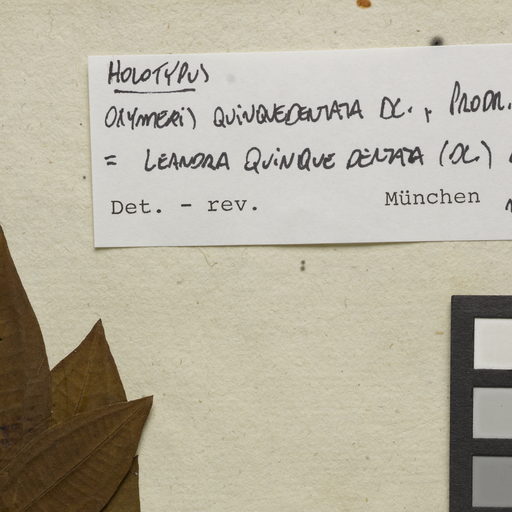 HOLOTYPUS
OXYMERIS QUINQUEDENTATA DC., PRODR.
= LEANDRA QUINQUE DENTATA (DC.)
Det. - rev. München